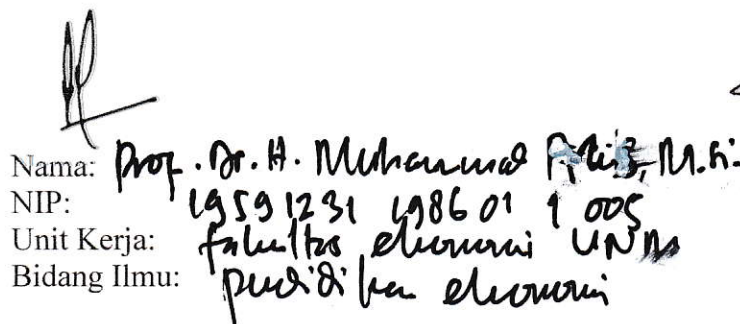 Nama: Prof. Dr. H. Muhammad Azis, M.Si.
NIP: 19591231 198601 1 005
Unit Kerja: fakultas ekonomi UNM
Bidang Ilmu: pendidikan ekonomi